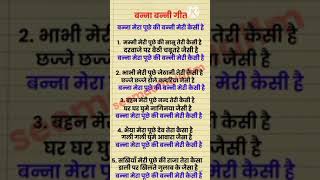 बन्ना बन्नी गीत
बन्ना मेरा पूछे की बन्नी मेरी कैसी है
1. मम्मी मेरी पूछे की सासु तेरी कैसी है
दरवाजे पर बैठी चबूतरे जैसी है
बन्ना मेरा पूछे की बन्नी मेरी कैसी है
2. भाभी मेरी पूछे जेठानी तेरी कैसी है
छज्जे छज्जे डोले कबूतरी जैसी है
बन्ना मेरा पूछे की बन्नी मेरी कैसी है
3. बहन मेरी पूछे नन्द तेरी कैसी है
घर घर घुमे नागिन जैसी है
बन्ना मेरा पूछे की बन्नी मेरी कैसी है
4. भैया मेरा पूछे देवर तेरा कैसा है
गली गली घुमे आवारा जैसा है
बन्ना मेरा पूछे की बन्नी मेरी कैसी है
5. सखियाँ मेरी पूछे की राजा तेरा कैसा
डाली पर खिलते गुलाब के जैसा है
बन्ना मेरा पूछे की बन्नी मेरी कैसी है